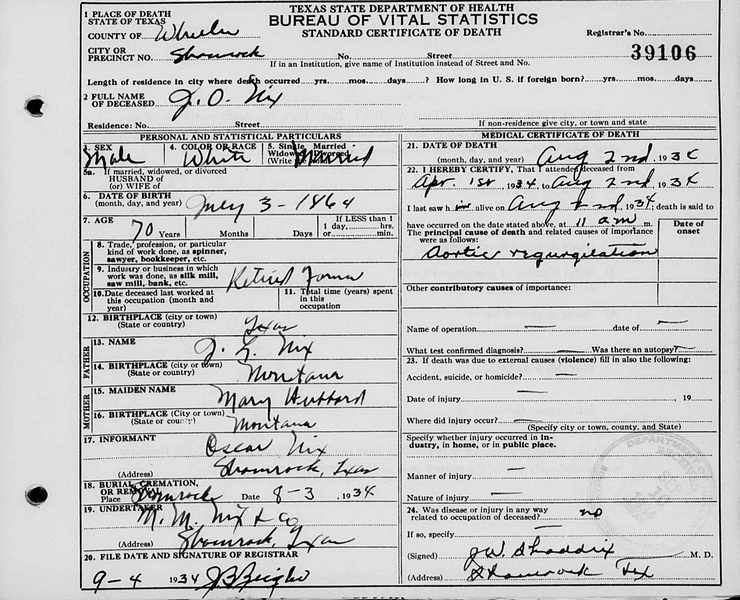 TEXAS STATE DEPARTMENT OF HEALTH
BUREAU OF VITAL STATISTICS
STANDARD CERTIFICATE OF DEATH
1 PLACE OF DEATH
STATE OF TEXAS
COUNTY OF Wheeler
Registrar's No.
39106
CITY OR PRECINCT NO. Shamrock No. Street
If in an Institution, give name of Institution instead of Street and No.
Length of residence in city where death occurred yrs. mos. days? How long in U. S. if foreign born? yrs. mos. days
2 FULL NAME OF DECEASED J. O. Nix
Residence: No. Street
If non-residence give city, or town and state
PERSONAL AND STATISTICAL PARTICULARS
3. SEX Male
4. COLOR OR RACE White
5. Single Married Widowed Divorced (Write Married
5a. If married, widowed, or divorced
HUSBAND OF
(or) WIFE OF
6. DATE OF BIRTH
(month, day, and year) 3-1864
7. AGE 70 Years Months Days If LESS than 1 day, hrs. or min.
OCCUPATION
8. Trade, profession, or particular kind of work done, as spinner, sawyer, bookkeeper, etc.
9. Industry or business in which work was done, as silk mill, saw mill, bank, etc. Retired
10. Date deceased last worked at this occupation (month and year)
11. Total time (years) spent in this occupation
12. BIRTHPLACE (city or town)
(State or country) Texas
FATHER
13. NAME Nix
14. BIRTHPLACE (city or town)
(State or country) Montana
MOTHER
15. MAIDEN NAME Mary Hubbard
16. BIRTHPLACE (city or town)
(State or country) Montana
17. INFORMANT Oscar Nix
(Address) Shamrock, Texas
18. BURIAL, CREMATION, OR REMOVAL
Place Shamrock Date 8-3 1934
19. UNDERTAKER M. M. Nix & Co
Shamrock, Texas
20. FILE DATE AND SIGNATURE OF REGISTRAR
9-4 1934
MEDICAL CERTIFICATE OF DEATH
21. DATE OF DEATH
(month, day, and year) Aug 2nd, 1934
22. I HEREBY CERTIFY, That I attended deceased from
Apr. 1st 1934 to Aug 2nd, 1934
I last saw him alive on Aug 2nd, 1934; death is said to
have occurred on the date stated above, at 11 am m.
The principal cause of death and related causes of importance were as follows:
Date of onset
Aortic regurgitation
Other contributory causes of importance:
Name of operation — date of —
What test confirmed diagnosis? — Was there an autopsy? —
23. If death was due to external causes (violence) fill in also the following:
Accident, suicide, or homicide? —
Date of injury — 19
Where did injury occur? —
(Specify city or town, county, and State)
Specify whether injury occurred in industry, in home, or in public place.
Manner of injury —
Nature of injury —
24. Was disease or injury in any way related to occupation of deceased? no
If so, specify —
(Signed) M. D.
(Address) Shamrock Tex